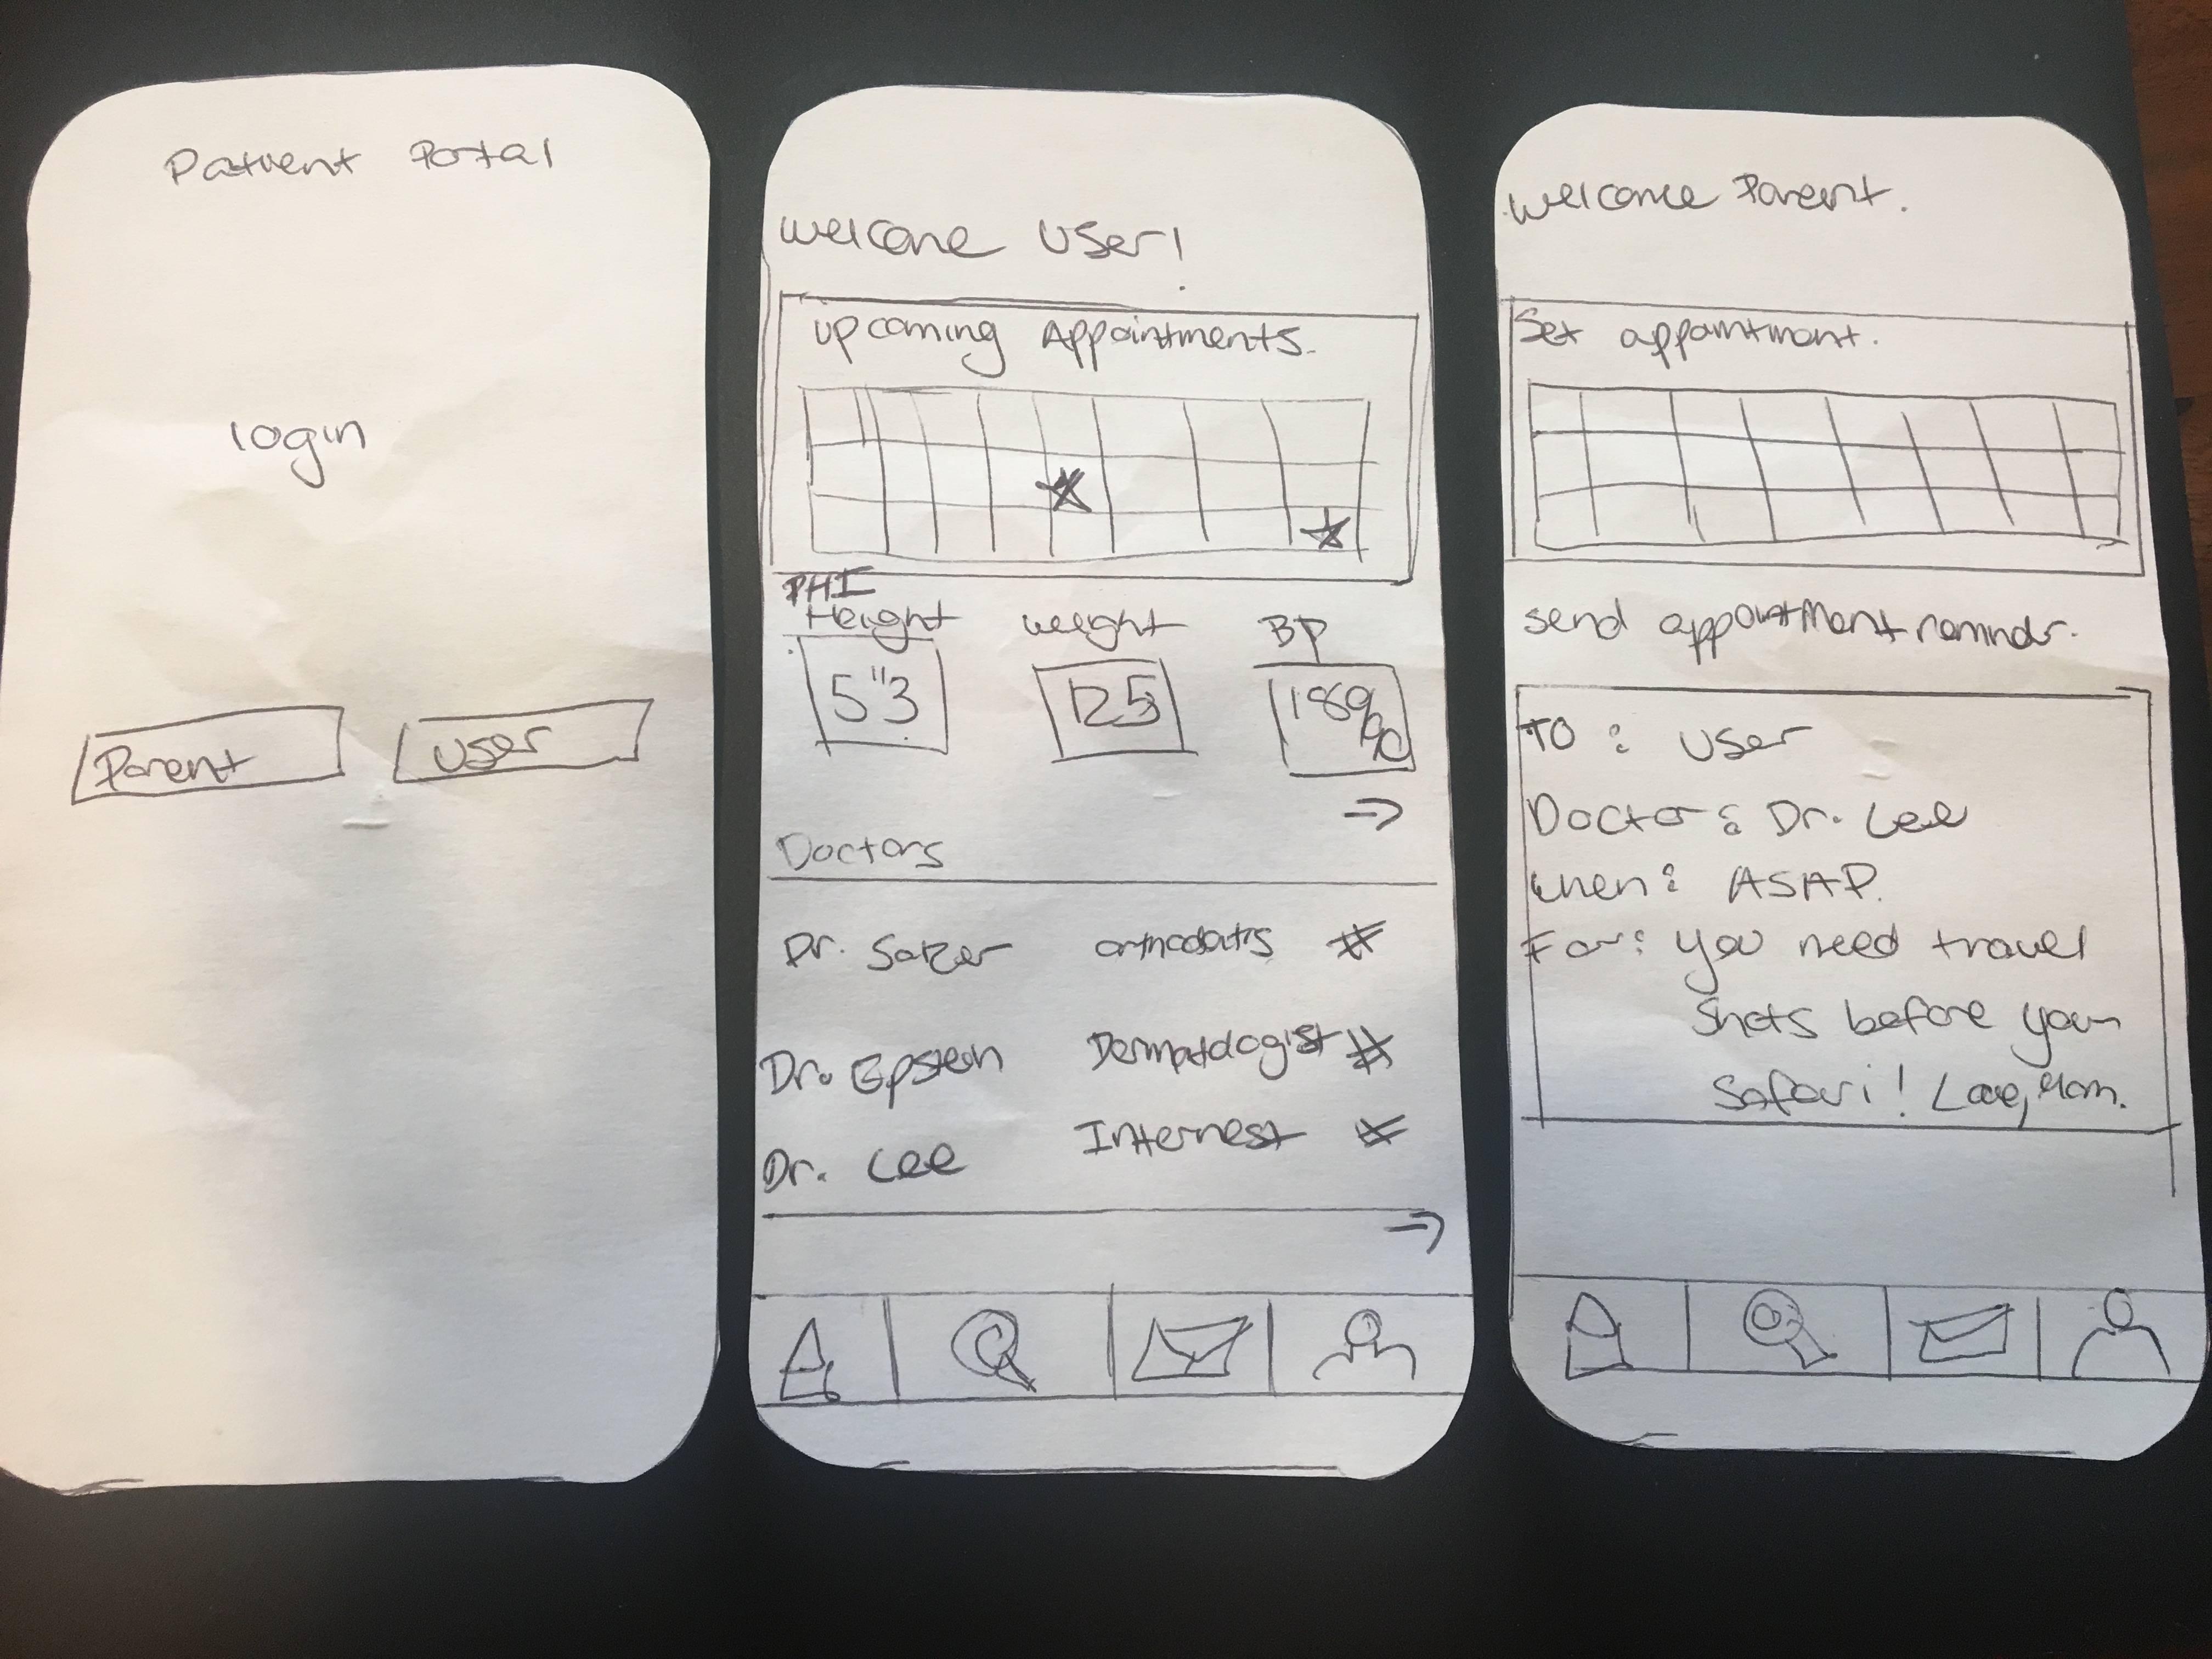 Patient Portal
login
Parent
User
Welcome User!
upcoming Appointments.
PHI
Height weight BP
5"3 125
Doctors
Dr. Satzer #
Dr. Epstein Dermatologist #
Dr. Lee Internest #
Welcome Parent.
Set appointment.
send appointment remindr.
To: User
Doctor: Dr. Lee
When: ASAP
For: you need travel
Shots before your
Safari! Love, Mom.